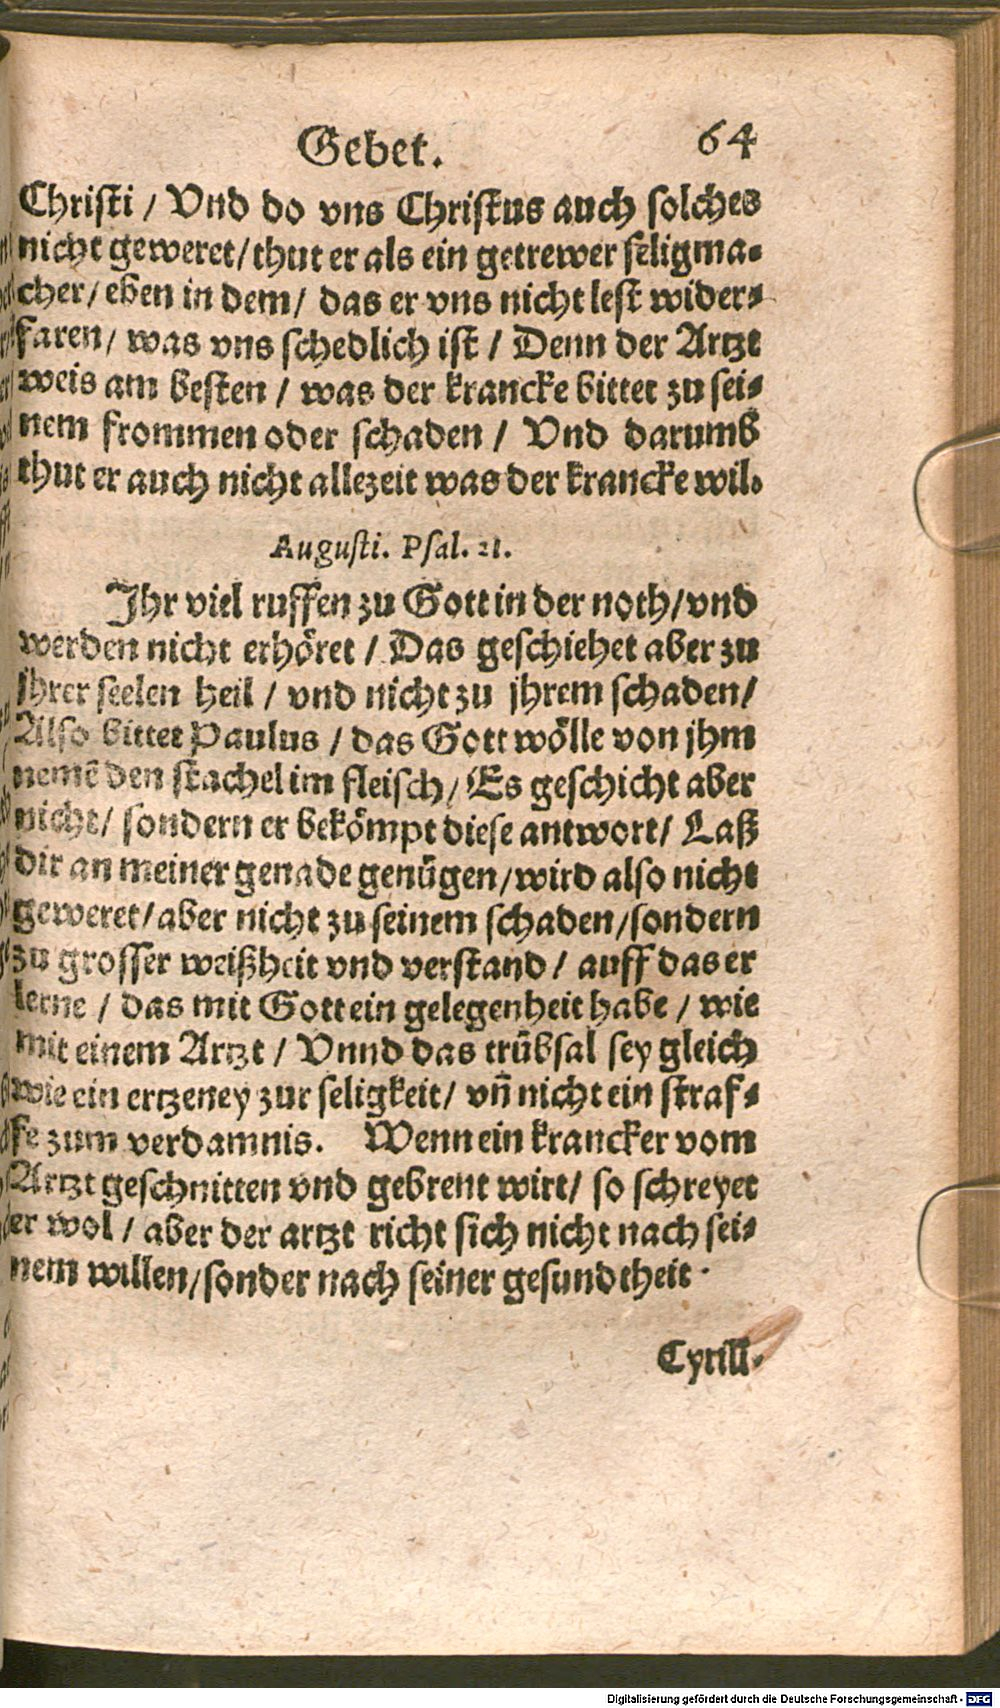 Gebet. 64
Christi / Vnd do vns Christus auch solches
nicht geweret / thut er als ein getrewer seligma-
cher / eben in dem / das er vns nicht lest wider-
faren / was vns schedlich ist / Denn der Artzt
weis am besten / was der krancke bittet zu sei-
nem frommen oder schaden / Vnd darumb
thut er auch nicht allezeit was der krancke wil.
Augusti. Psal. 21.
Jhr viel ruffen zu Gott in der noth / vnd
werden nicht erhöret / Das geschiehet aber zu
jhrer seelen heil / vnd nicht zu jhrem schaden /
Also bittet Paulus / das Gott wölle von jhm
nemē den stachel im fleisch / Es geschicht aber
nicht / sondern er bekömpt diese antwort / Laß
dir an meiner genade genügen / wird also nicht
geweret / aber nicht zu seinem schaden / sondern
zu grosser weißheit vnd verstand / auff das er
lerne / das mit Gott ein gelegenheit habe / wie
mit einem Artzt / Vnnd das trübsal sey gleich
wie ein ertzeney zur seligkeit / vñ nicht ein straf-
fe zum verdamnis. Wenn ein krancker vom
Artzt geschnitten vnd gebrent wirt / so schreyet
er wol / aber der artzt richt sich nicht nach sei-
nem willen / sonder nach seiner gesundtheit.
Cyrill.
Digitalisierung gefördert durch die Deutsche Forschungsgemeinschaft - DFG